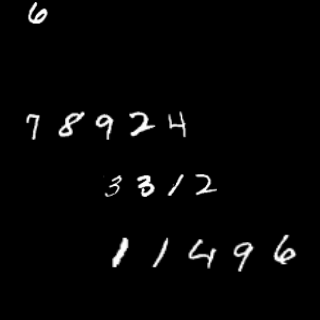 6
78924
3312
11496